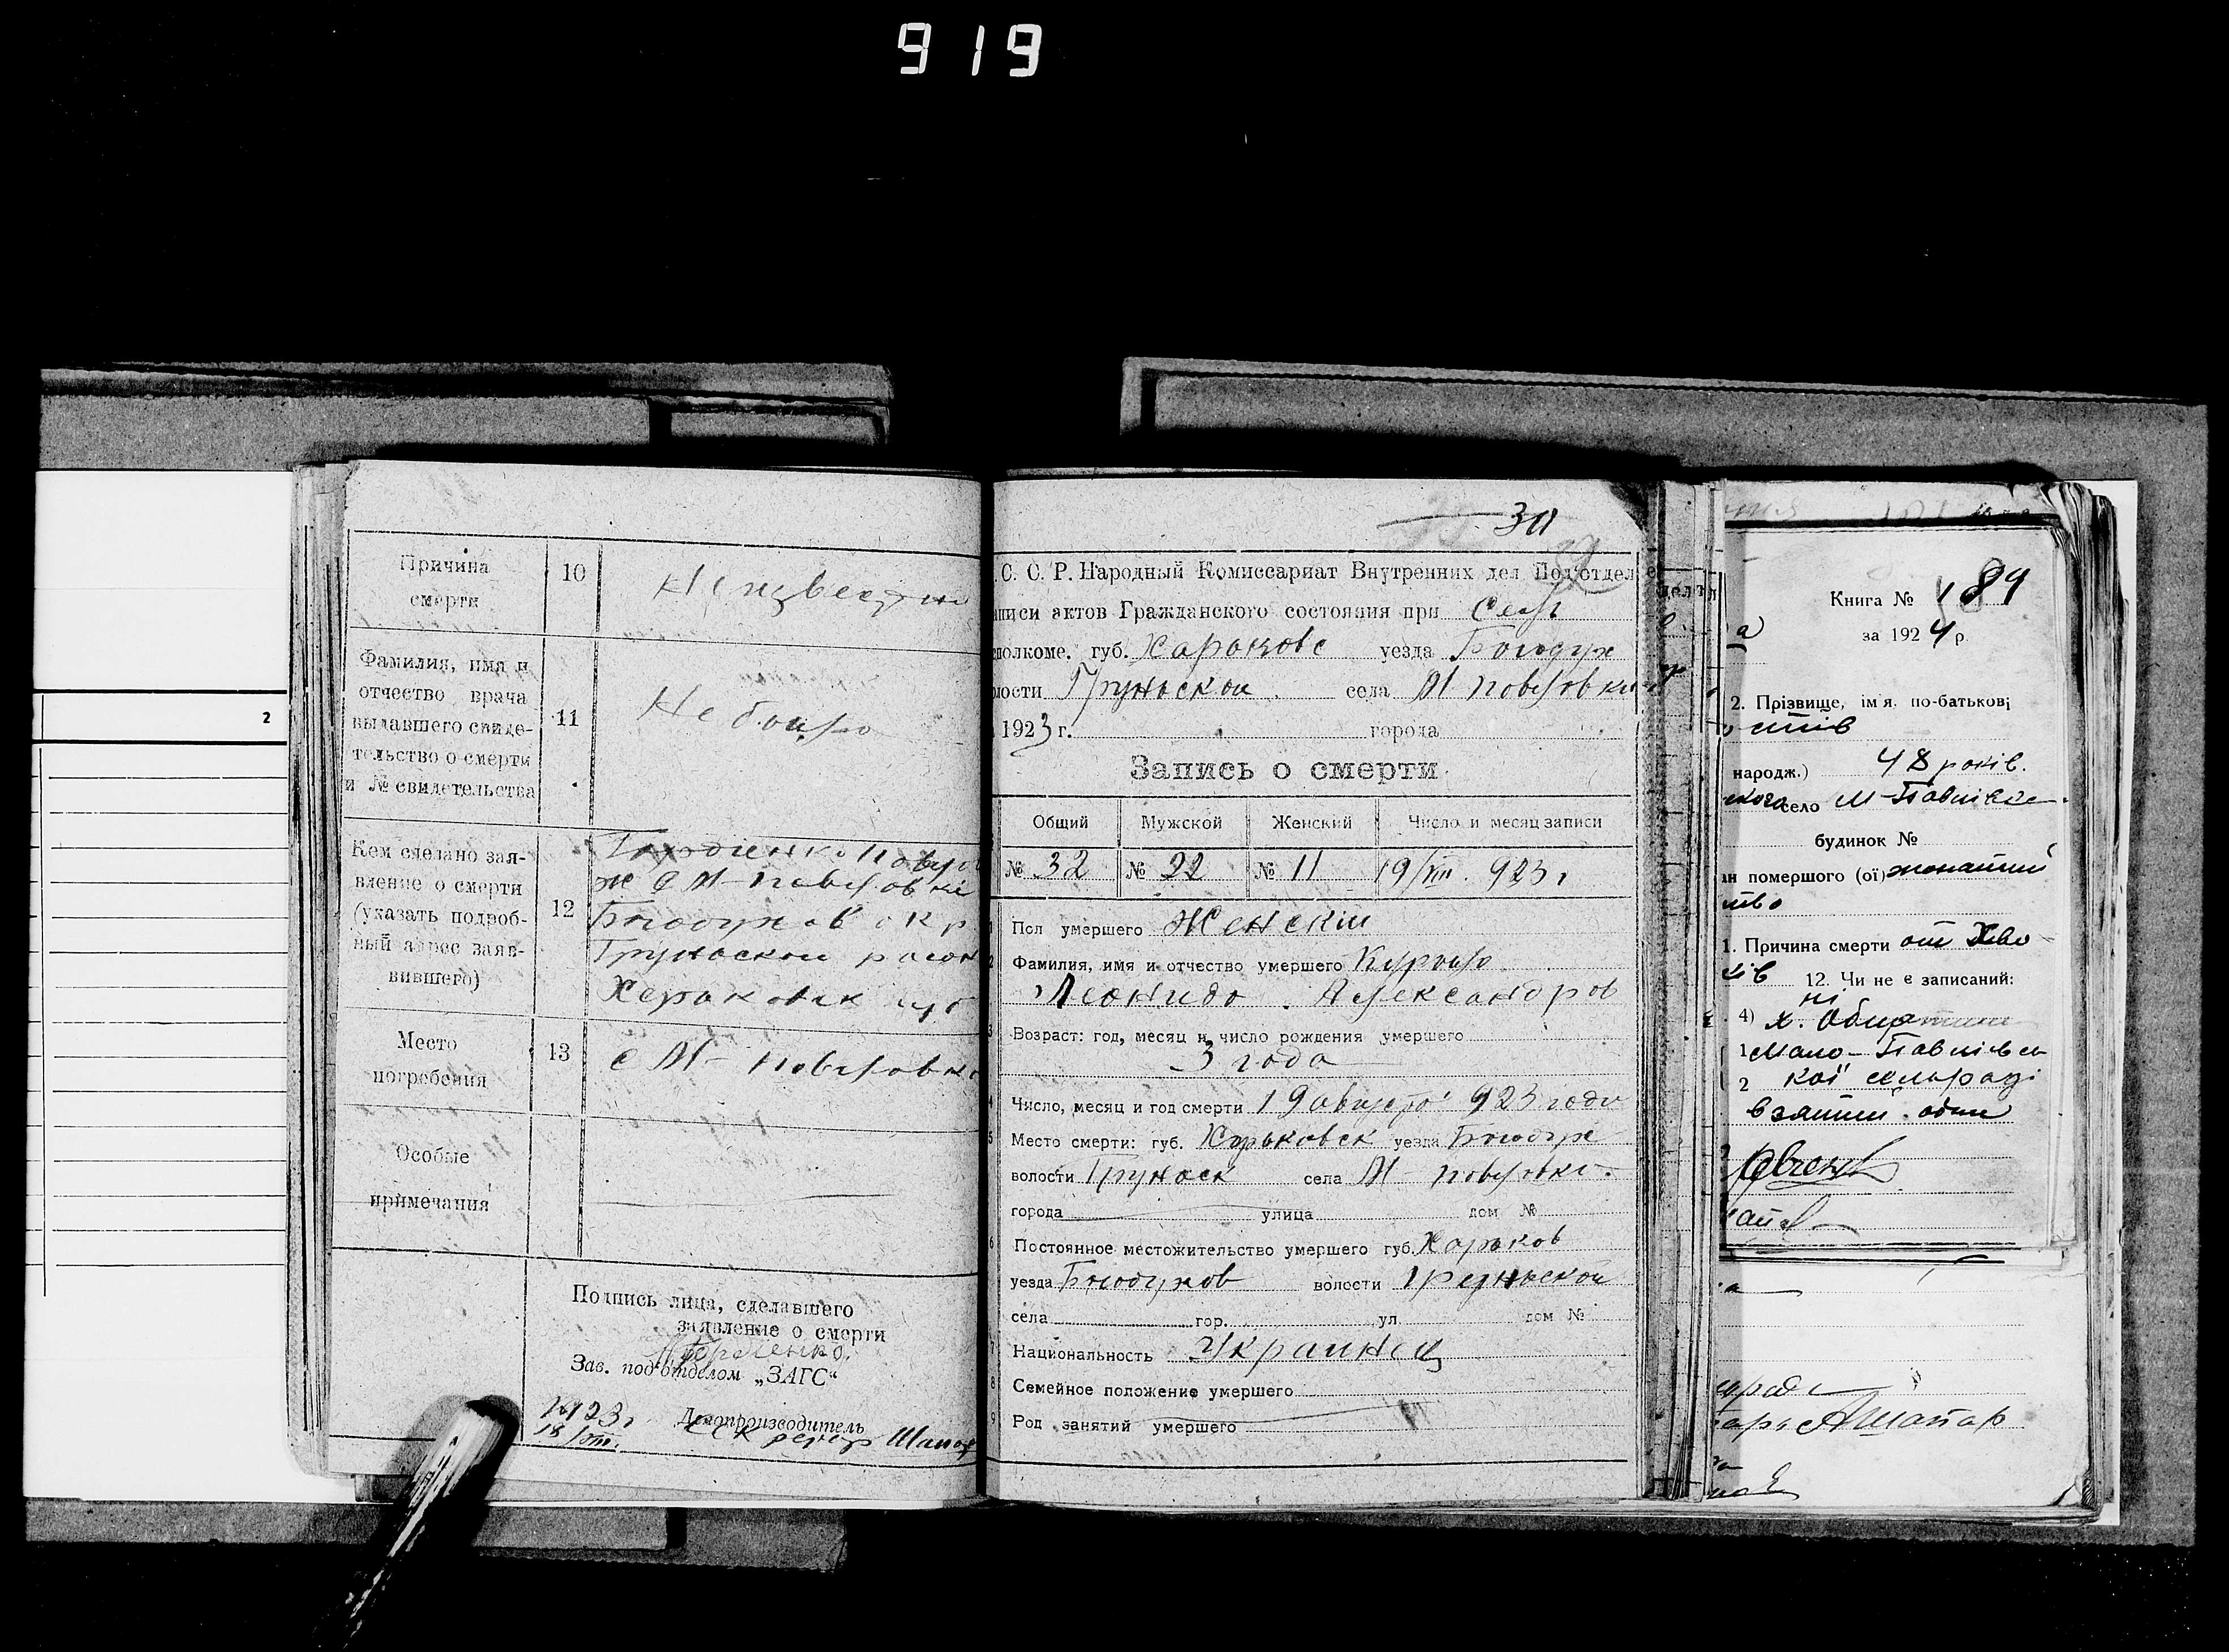 919
2
Причина
смерти
10
Неизвестно
Фамилия, имя и
отчество врача
выдавшего свиде-
тельство о смерти
и № свидетельства
11
Не было
Кем сделано зая-
вление о смерти
(указать подроб-
ный адрес заяв-
вившего)
12
ж с М-Павловки
Богодухов окр
Груньской район
Харьковск губ
Место
погребения
13
с М- Павловка
Особые
примечания
Подпись лица, сделавшего
заявление о смерти
Зав. под'отделом „ЗАГС“
1923 г
18/VIII.
Делопроизводитель
Секретар Шапар
30
С. С. Р. Народный Комиссариат Внутренних дел Под'отдел
аписи актов Гражданского состояния при Сель
сполкоме. губ. Харьковс уезда Богодух
лости Груньской села М Павловки
1923 г. города
Запись о смерти
Общий Мужской Женский Число и месяц записи
№ 32 № 22 № 11 19/VIII. 923 г
1 Пол умершего Женский
2 Фамилия, имя и отчество умершего
Леонида Александров
3 Возраст: год, месяц и число рождения умершего
3 года
4 Число, месяц и год смерти 19 августа 923 года
5 Место смерти: губ. Харьковск уезда Богодух
волости Груньск села М- Павловки.
города улица дом №
6 Постоянное местожительство умершего губ. Харьков
уезда Богодухов волости Груньской
села гор. ул. дом №
7 Национальность Украинец
8 Семейное положение умершего
9 Род занятий умершего
Книга № 184
за 1924 р.
2. Прізвище, ім'я, по-батькові
народж.) 48 років.
село М-Павлівка
будинок №
ан помершого (ої) жонатий
1. Причина смерти от
12. Чи не є записаний:
ні
4)
1 Мало-Павлівсь
2 кої сельради
АШапар